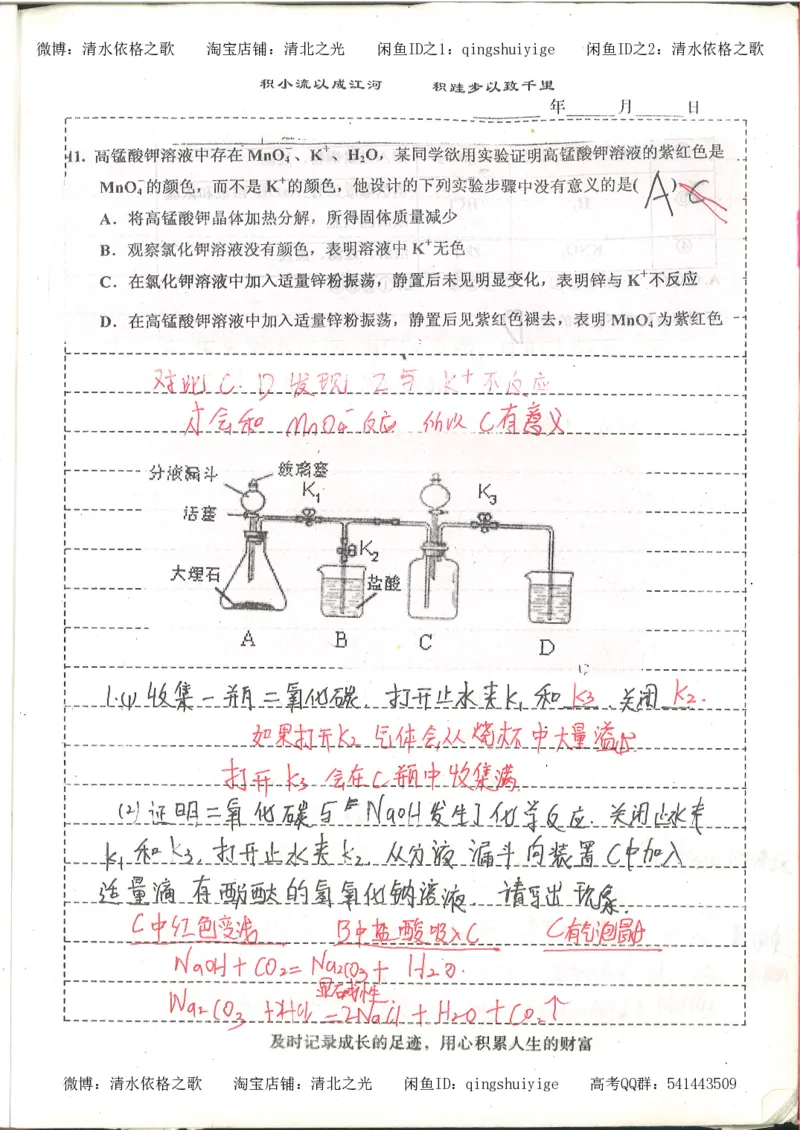 微博：清水依格之歌 淘宝店铺：清北之光 闲鱼ID之1：qingshuiyige 闲鱼ID之2：清水依格之歌
积小流以成江河 积跬步以致千里
年 月 日
11. 高锰酸钾溶液中存在 MnO₄⁻、K⁺、H₂O，某同学欲用实验证明高锰酸钾溶液的紫红色是
MnO₄⁻的颜色，而不是 K⁺的颜色，他设计的下列实验步骤中没有意义的是( A ) C
A．将高锰酸钾晶体加热分解，所得固体质量减少
B．观察氯化钾溶液没有颜色，表明溶液中 K⁺无色
C．在氯化钾溶液中加入适量锌粉振荡，静置后未见明显变化，表明锌与 K⁺不反应
D．在高锰酸钾溶液中加入适量锌粉振荡，静置后见紫红色褪去，表明 MnO₄⁻为紫红色
对比 C. D 发现 Z与 K⁺不反应
才会和 MnO₄⁻反应 所以 C有意义
分液漏斗 玻璃塞
K₁ K₃
活塞
K₂
大理石 盐酸
A B C D
1.(1) 收集一瓶二氧化碳. 打开止水夹K₁ 和 K₃. 关闭 K₂.
如果打开K₂ 气体会从烧杯中大量溢出
打开 K₃ 会在C瓶中收集满
(2) 证明二氧化碳与NaOH发生了化学反应. 关闭止水夹
K₁ 和 K₃. 打开止水夹K₂. 从分液漏斗向装置C中加入
适量滴有酚酞的氢氧化钠溶液. 请写出现象.
C中红色变浅 B中盐酸吸入C C有气泡冒出
NaOH + CO₂ = Na₂CO₃ + H₂O.
显碱性.
Na₂CO₃ + HCl = 2NaCl + H₂O + CO₂↑
及时记录成长的足迹，用心积累人生的财富
微博：清水依格之歌 淘宝店铺：清北之光 闲鱼ID：qingshuiyige 高考QQ群：541443509